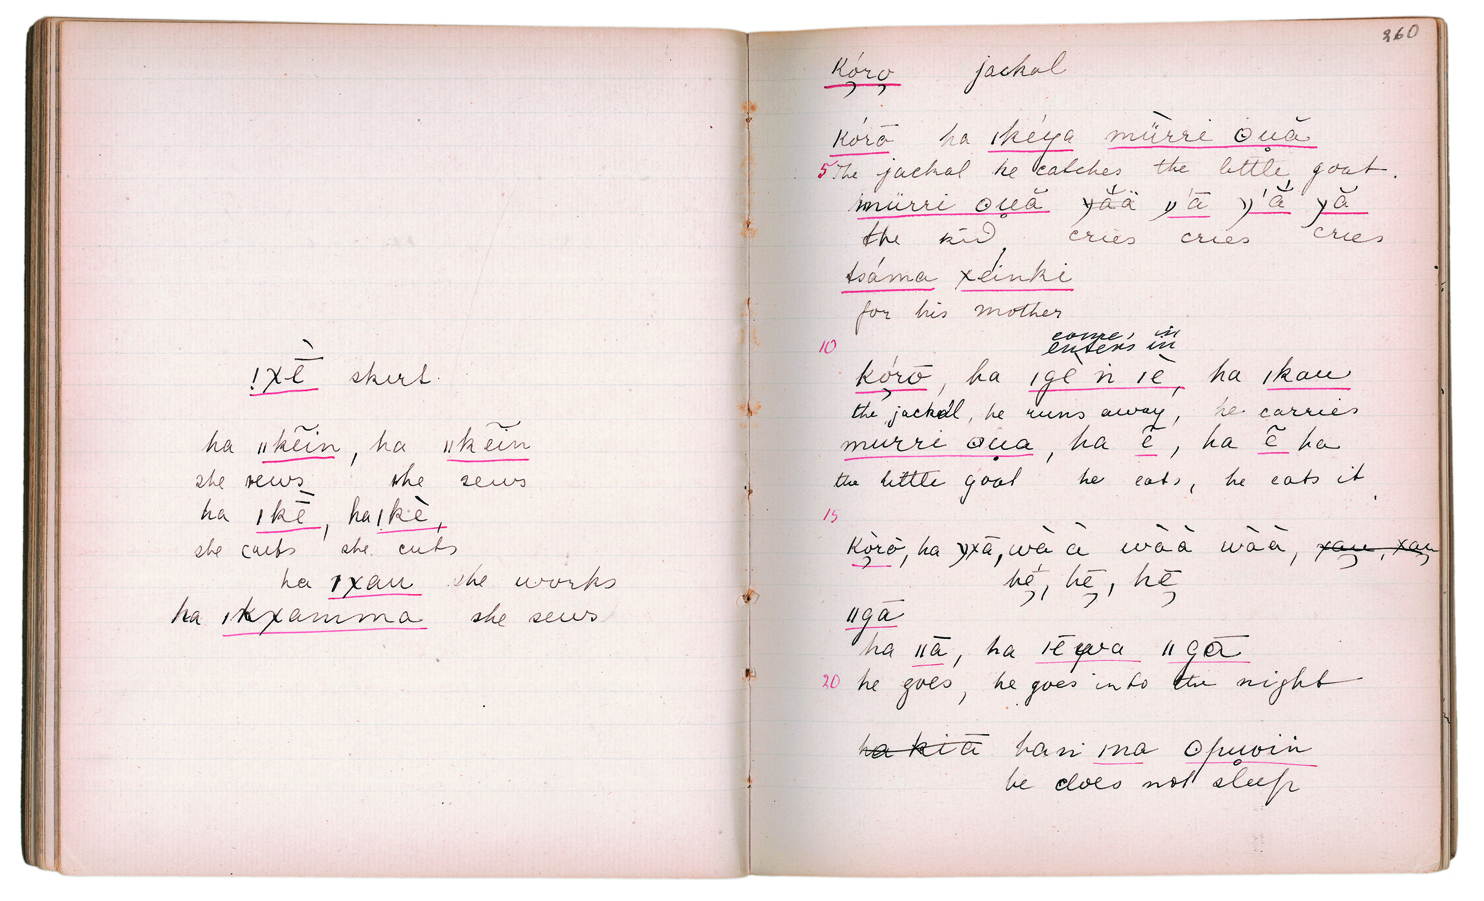 !χḕ skirt.
ha ǁkẽin, ha ǁkẽin
she sews she sews
ha ǀkḕ, ha ǀkḕ,
she cuts she cuts
ha ǀχau she works
ha ǀkχamma she sews
360
Kóro̧ jackal
Kórō ha ǀkéya mürri ʘuă
5 The jackal he catches the little goat.
mürri ʘuă
the kid, cries cries cries
tsáma χéinki
for his mother
come, in
10 enters in
kórō, ha ǀgē n ǀē, ha ǀkau
the jackal, he runs away, he carries
murri ʘua, ha ẽ, ha ẽ ha
the little goat he eats, he eats it.
15
Kòrò, ha wà à wàà wàà, χau, χau
hē, hē, hē
ǁgā
ha ǁā, ha ǀē ǁgā
20 he goes, he goes into the night
ha kiā han ǀna ʘpuoin
he does not sleep